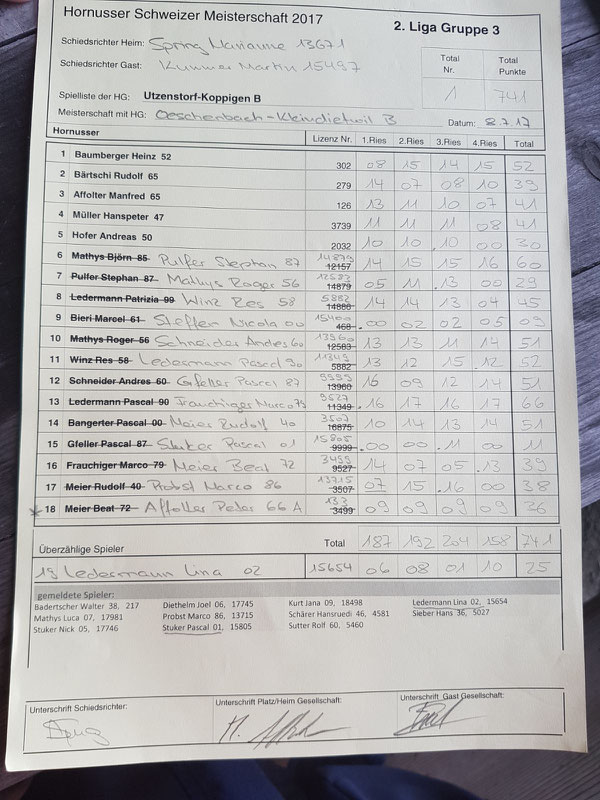 Hornusser Schweizer Meisterschaft 2017 2. Liga Gruppe 3
Schiedsrichter Heim: Spring Marianne 13671
Schiedsrichter Gast: Kummer Martin 15497
Total Nr. Total Punkte
1 741
Spielliste der HG: Utzenstorf-Koppigen B
Meisterschaft mit HG: Oeschenbach-Kleindietwil B Datum: 8.7.17
Hornusser Lizenz Nr. 1.Ries 2.Ries 3.Ries 4.Ries Total
1 Baumberger Heinz 52 302 08 15 14 15 52
2 Bärtschi Rudolf 65 279 14 07 08 10 39
3 Affolter Manfred 65 126 13 11 10 07 41
4 Müller Hanspeter 47 3739 11 11 11 08 41
5 Hofer Andreas 50 2032 10 10 10 00 30
6 Mathys Björn 85 Pulfer Stephan 87 14879 12157 14 15 15 16 60
7 Pulfer Stephan 87 Mathys Roger 56 12583 14879 05 11 13 00 29
8 Ledermann Patrizia 99 Winz Res 58 5882 14886 14 14 13 04 45
9 Bieri Marcel 61 Steffen Nicola 00 15400 468 00 02 02 05 09
10 Mathys Roger 56 Schneider Andres 60 13960 12583 13 13 11 14 51
11 Winz Res 58 Ledermann Pascal 90 11349 5882 13 12 15 12 52
12 Schneider Andres 60 Gfeller Pascal 87 9999 13960 16 09 12 14 51
13 Ledermann Pascal 90 Frauchiger Marco 79 9527 11349 16 17 16 17 66
14 Bangerter Pascal 00 Meier Rudolf 40 3507 16875 10 14 13 14 51
15 Gfeller Pascal 87 Stuker Pascal 01 15805 9999 00 00 11 00 11
16 Frauchiger Marco 79 Meier Beat 72 3499 9527 14 07 05 13 39
17 Meier Rudolf 40 Probst Marco 86 13715 3507 07 15 16 00 38
* 18 Meier Beat 72 Affolter Peter 66 A 133 3499 09 09 09 09 36
Überzählige Spieler Total 187 192 204 158 741
19 Ledermann Lina 02 15654 06 08 01 10 25
gemeldete Spieler:
Badertscher Walter 38, 217 Diethelm Joel 06, 17745 Kurt Jana 09, 18498 Ledermann Lina 02, 15654
Mathys Luca 07, 17981 Probst Marco 86, 13715 Schärer Hansruedi 46, 4581 Sieber Hans 36, 5027
Stuker Nick 05, 17746 Stuker Pascal 01, 15805 Sutter Rolf 60, 5460
Unterschrift Schiedsrichter: Unterschrift Platz/Heim Gesellschaft: Unterschrift Gast Gesellschaft: